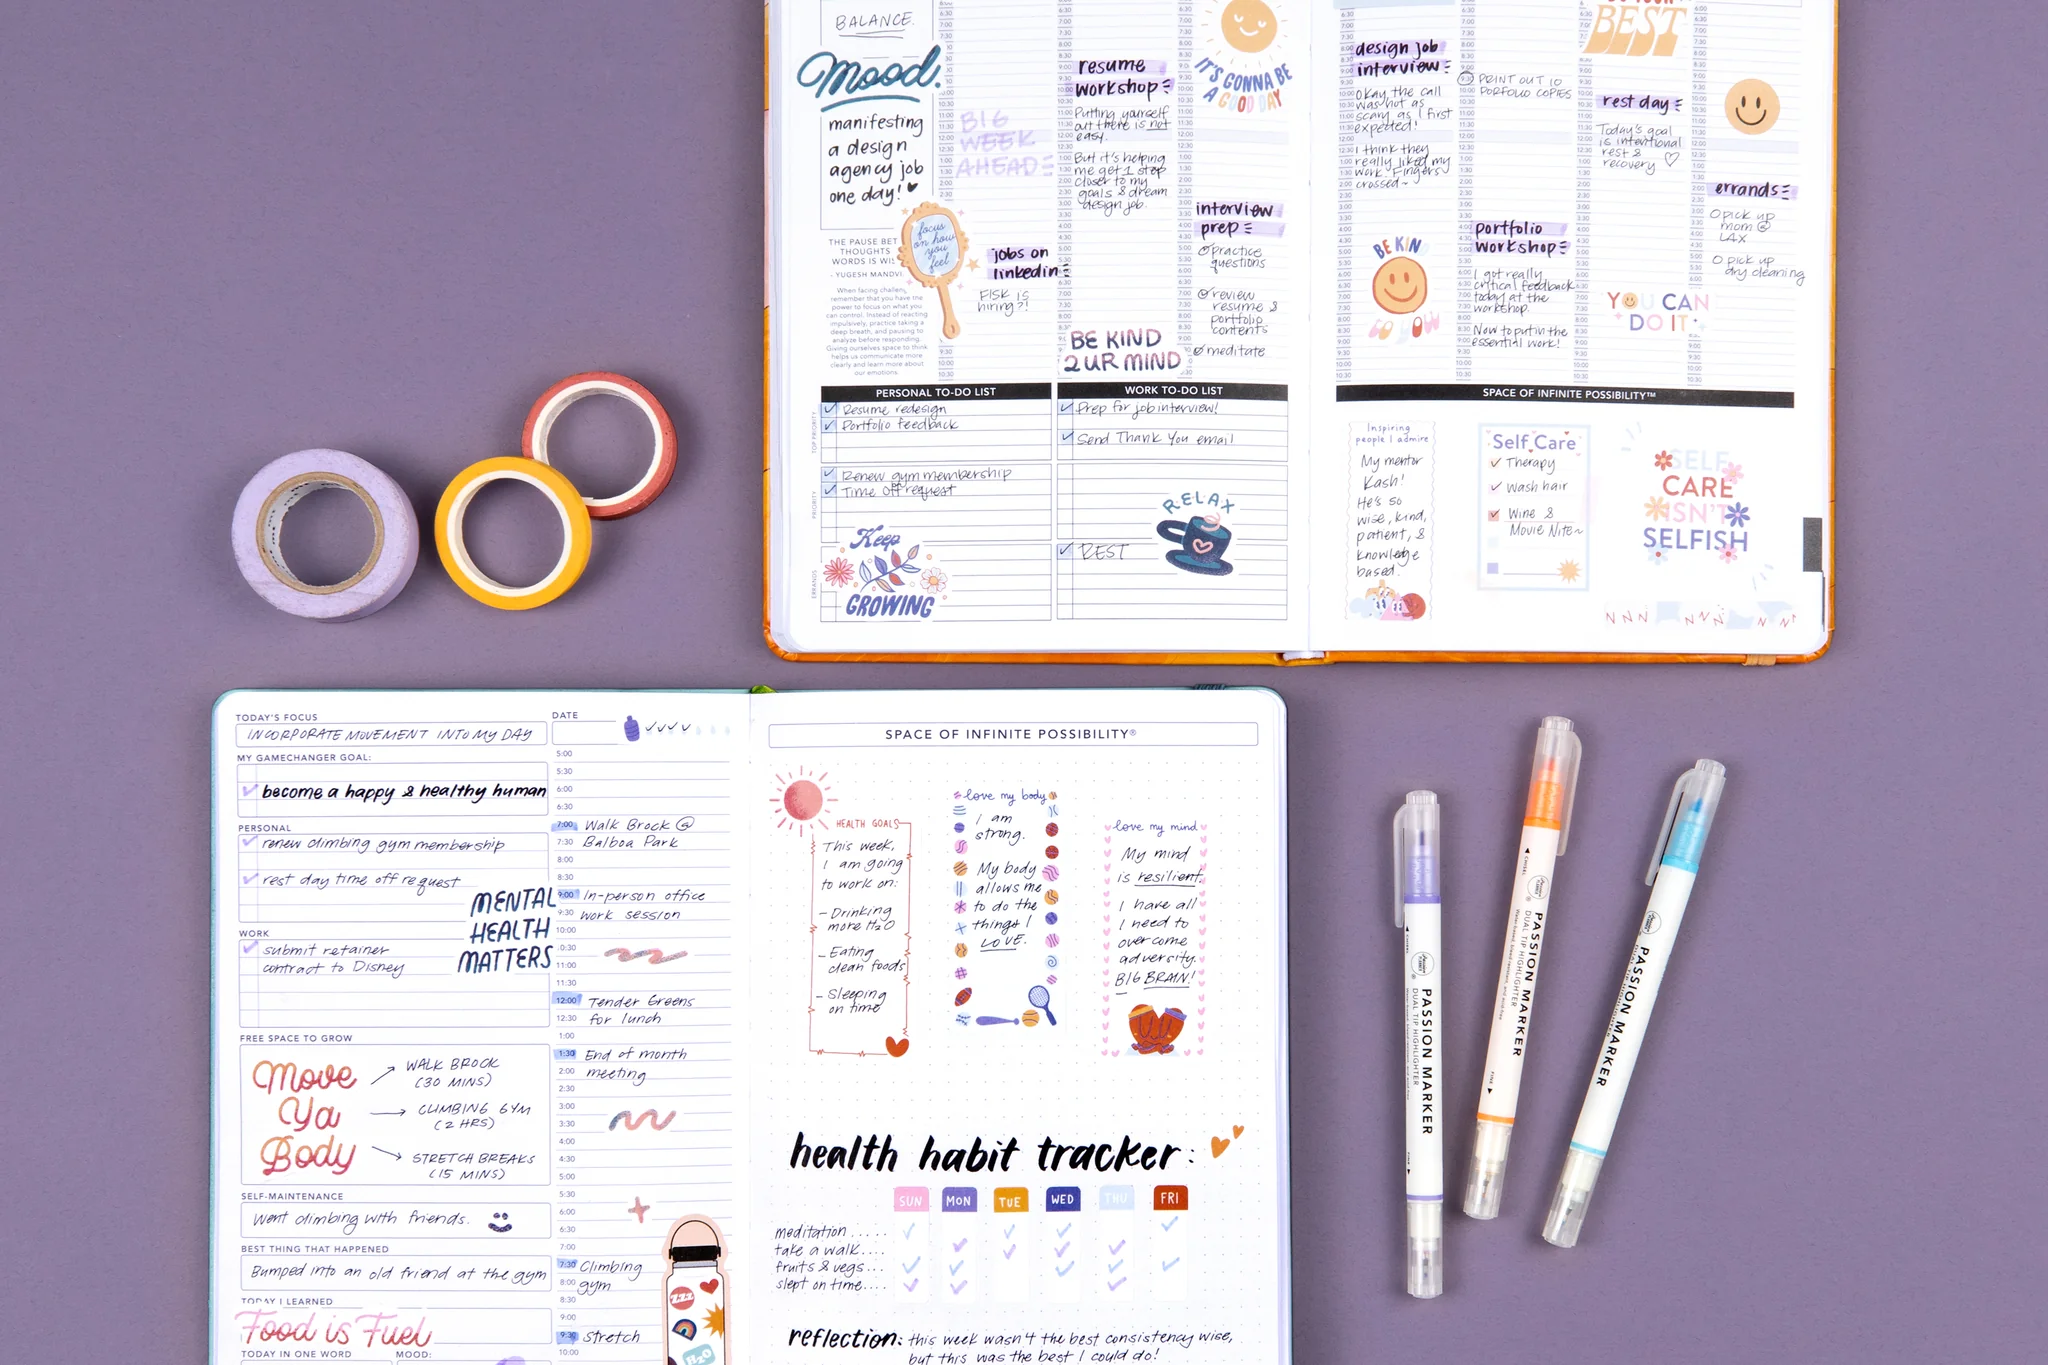 BALANCE.
Mood.
manifesting
a design
agency job
one day!
THE PAUSE BET
THOUGHTS
WORDS IS WIL
- YUGESH MANDVI
When facing challen
remember that you have the
power to focus on what you
can control. Instead of reacting
impulsively, practice taking a
deep breath, and pausing to
analyze before responding.
Giving ourselves space to think
helps us communicate more
clearly and learn more about
our emotions.
focus
on how
you
feel
BIG
WEEK
AHEAD
jobs on
linkedin
FISK is
hiring?!
resume
workshop
Putting yourself
out there is not
easy.
But it's helping
me get 1 step
closer to my
goals & dream
design job.
BE KIND
2 UR MIND
IT'S GONNA BE
A GOOD DAY
interview
prep
practice
questions
review
resume &
portfolio
contents
meditate
PERSONAL TO-DO LIST
TOP PRIORITY
Resume redesign
Portfolio feedback
PRIORITY
Renew gym membership
Time off request
ERRANDS
Keep
GROWING
WORK TO-DO LIST
Prep for job interview!
Send Thank You email
RELAX
REST
design job
interview
Okay the call
was not as
scary as I first
expected!
I think they
really liked my
work. Fingers
crossed~
BE KIN
9:30 PRINT OUT 10
PORFOLIO COPIES
portfolio
workshop
I got really
critical feedback
today at the
workshop.
Now to put in the
essential work!
BEST
rest day
Today's goal
is intentional
rest &
recovery
YOU CAN
DO IT
errands
pick up
mom @
LAX
pick up
dry cleaning
SPACE OF INFINITE POSSIBILITY™
Inspiring
people I admire
My mentor
Kash!
He's so
wise, kind,
patient, &
knowledge
based.
Self Care
Therapy
Wash hair
Wine &
Movie Nite~
SELF
CARE
ISN'T
SELFISH
TODAY'S FOCUS
INCORPORATE MOVEMENT INTO MY DAY
MY GAMECHANGER GOAL:
become a happy & healthy human
PERSONAL
renew climbing gym membership
rest day time off request
MENTAL
HEALTH
MATTERS
WORK
submit retainer
contract to Disney
FREE SPACE TO GROW
Move
Ya
Body
WALK BROCK
(30 MINS)
CLIMBING GYM
(2 HRS)
STRETCH BREAKS
(15 MINS)
SELF-MAINTENANCE
Went climbing with friends.
BEST THING THAT HAPPENED
Bumped into an old friend at the gym
TODAY I LEARNED
Food is Fuel
TODAY IN ONE WORD
MOOD:
DATE
5:00
5:30
6:00
6:30
7:00 Walk Brock @
7:30 Balboa Park
8:00
8:30
9:00 In-person office
9:30 work session
10:00
10:30
11:00
11:30
12:00 Tender Greens
12:30 for lunch
1:00
1:30 End of month
2:00 meeting
2:30
3:00
3:30
4:00
4:30
5:00
5:30
6:00
6:30
7:00
7:30 Climbing
8:00 gym
8:30
9:00
9:30 Stretch
10:00
ZZZ
H2O
SPACE OF INFINITE POSSIBILITY®
HEALTH GOALS
This week,
I am going
to work on:
- Drinking
more H2O
- Eating
clean foods
- Sleeping
on time
love my body
I am
strong.
My body
allows me
to do the
things I
LOVE.
love my mind
My mind
is resilient.
I have all
I need to
overcome
adversity.
BIG BRAIN!
health habit tracker:
SUN MON TUE WED THU FRI
meditation.....
take a walk....
fruits & vegs...
slept on time....
reflection: this week wasn't the best consistency wise,
but this was the best I could do!
PASSION MARKER
DUAL TIP HIGHLIGHTER
FINE
CHISEL
PASSION MARKER
DUAL TIP HIGHLIGHTER
FINE
PASSION MARKER